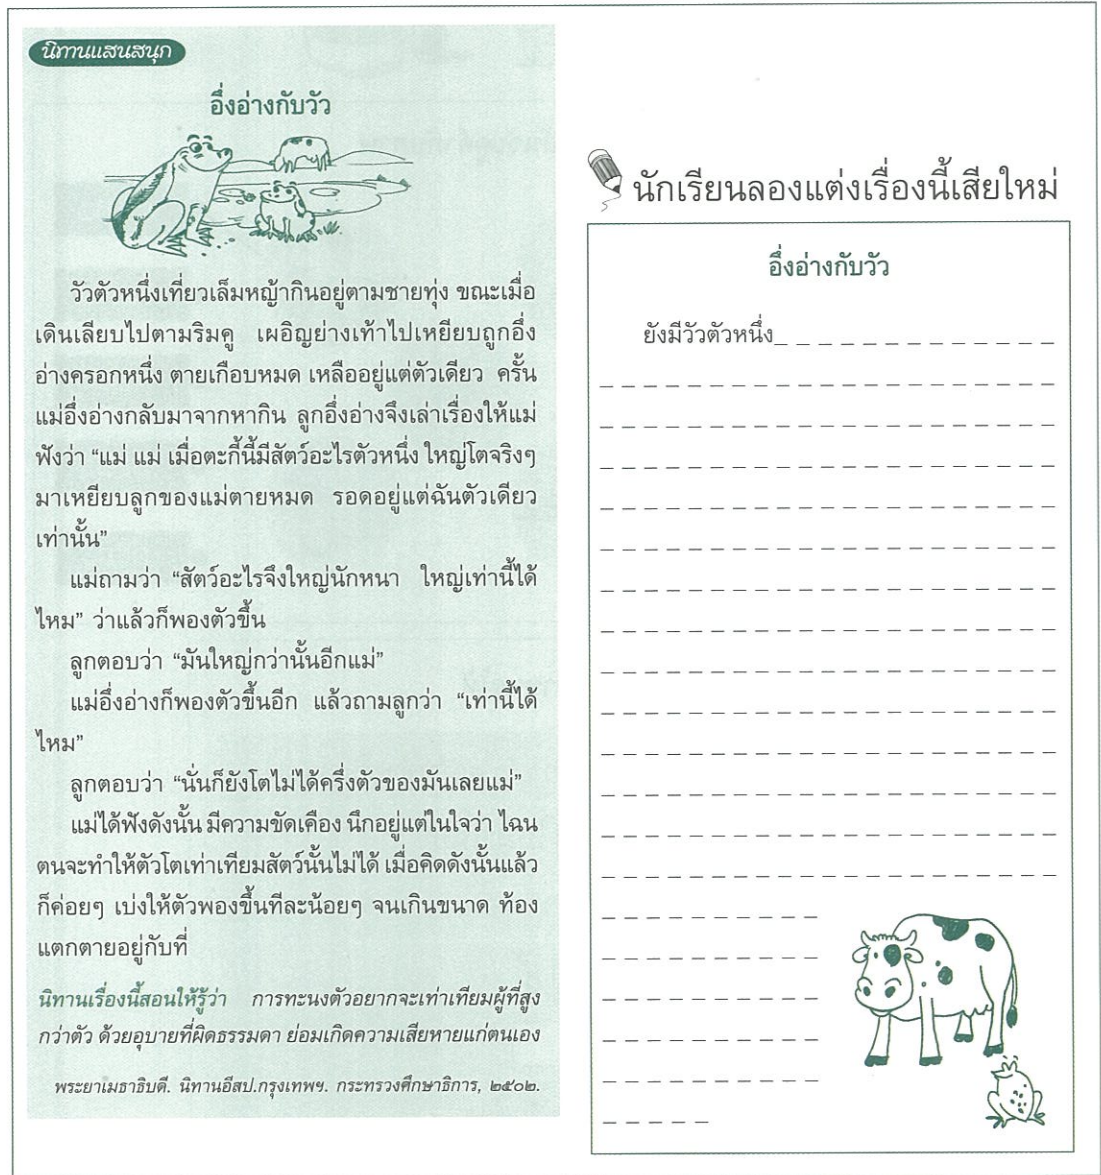 นิทานแสนสนุก
อึ่งอ่างกับวัว
วัวตัวหนึ่งเที่ยวเล็มหญ้ากินอยู่ตามชายทุ่ง ขณะเมื่อ
เดินเลียบไปตามริมคู เผอิญย่างเท้าไปเหยียบถูกอึ่ง
อ่างครอกหนึ่ง ตายเกือบหมด เหลืออยู่แต่ตัวเดียว ครั้น
แม่อึ่งอ่างกลับมาจากหากิน ลูกอึ่งอ่างจึงเล่าเรื่องให้แม่
ฟังว่า “แม่ แม่ เมื่อตะกี้นี้มีสัตว์อะไรตัวหนึ่ง ใหญ่โตจริงๆ
มาเหยียบลูกของแม่ตายหมด รอดอยู่แต่ฉันตัวเดียว
เท่านั้น”
แม่ถามว่า “สัตว์อะไรจึงใหญ่นักหนา ใหญ่เท่านี้ได้
ไหม” ว่าแล้วก็พองตัวขึ้น
ลูกตอบว่า “มันใหญ่กว่านั้นอีกแม่”
แม่อึ่งอ่างก็พองตัวขึ้นอีก แล้วถามลูกว่า “เท่านี้ได้
ไหม”
ลูกตอบว่า “นั่นก็ยังโตไม่ได้ครึ่งตัวของมันเลยแม่”
แม่ได้ฟังดังนั้น มีความขัดเคือง นึกอยู่แต่ในใจว่า ไฉน
ตนจะทำให้ตัวโตเท่าเทียมสัตว์นั้นไม่ได้ เมื่อคิดดังนั้นแล้ว
ก็ค่อยๆ เบ่งให้ตัวพองขึ้นทีละน้อยๆ จนเกินขนาด ท้อง
แตกตายอยู่กับที่
นิทานเรื่องนี้สอนให้รู้ว่า การทะนงตัวอยากจะเท่าเทียมผู้ที่สูง
กว่าตัว ด้วยอุบายที่ผิดธรรมดา ย่อมเกิดความเสียหายแก่ตนเอง
พระยาเมธาธิบดี. นิทานอีสป.กรุงเทพฯ. กระทรวงศึกษาธิการ, ๒๕๐๒.
นักเรียนลองแต่งเรื่องนี้เสียใหม่
อึ่งอ่างกับวัว
ยังมีวัวตัวหนึ่ง